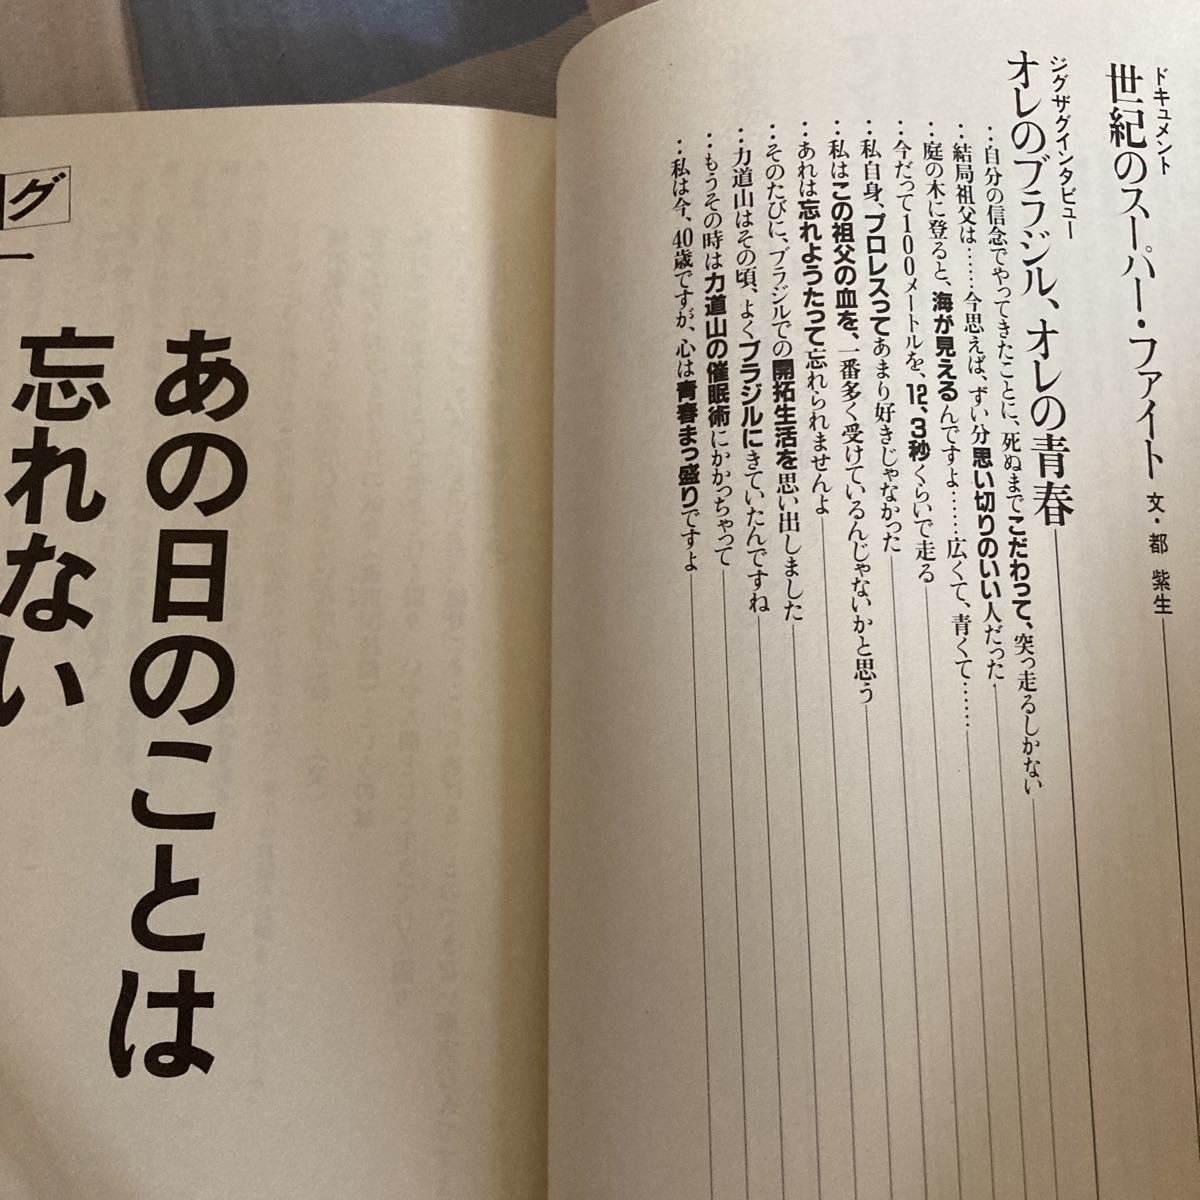 ドキュメント
世紀のスーパー・ファイト 文・都 紫生
ジグザグインタビュー
オレのブラジル、オレの青春
‥自分の信念でやってきたことに、死ぬまでこだわって、突っ走るしかない
‥結局祖父は……今思えば、ずい分思い切りのいい人だった
‥庭の木に登ると、海が見えるんですよ……広くて、青くて……
‥今だって100メートルを、12、3秒くらいで走る
‥私自身、プロレスってあまり好きじゃなかった
‥私はこの祖父の血を、一番多く受けているんじゃないかと思う
‥あれは忘れようたって忘れられませんよ
‥そのたびに、ブラジルでの開拓生活を思い出しました
‥力道山はその頃、よくブラジルにきていたんですね
‥もうその時は力道山の催眠術にかかっちゃって
‥私は今、40歳ですが、心は青春まっ盛りですよ
グ
ー
あの日のことは
忘れない